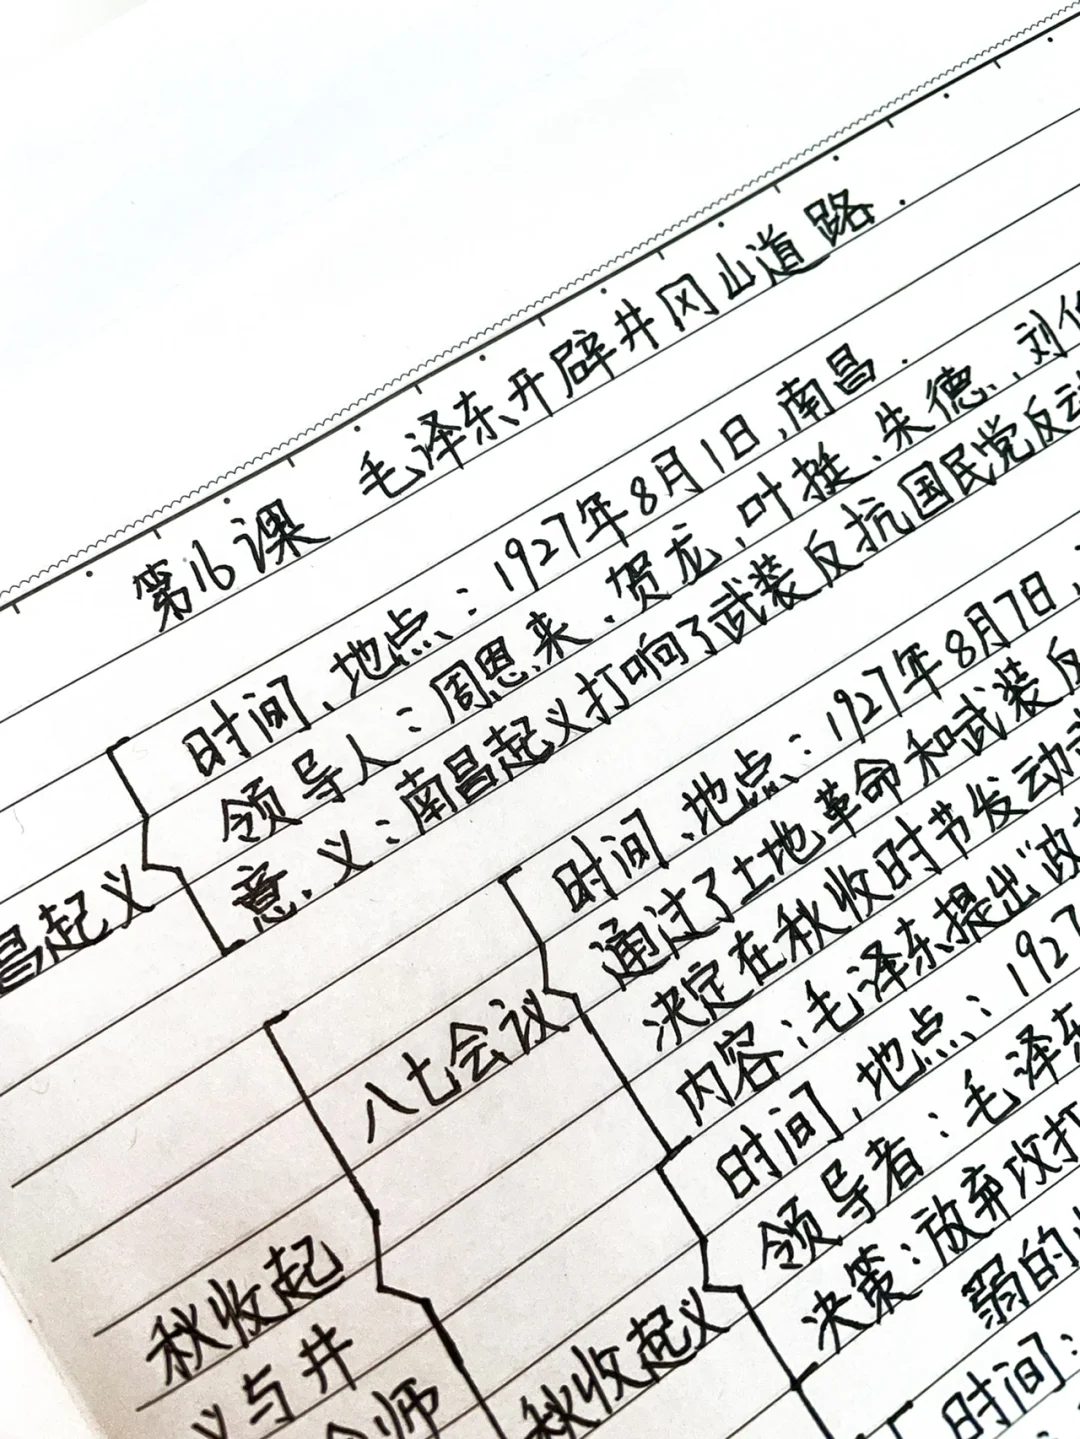 第16课 毛泽东开辟井冈山道路.
时间、地点：1927年8月1日,南昌.
领导人：周恩来、贺龙、叶挺、朱德、刘伯
意义：南昌起义打响了武装反抗国民党反动
昌起义
时间、地点：1927年8月7日,
通过了土地革命和武装反
决定在秋收时节发动
内容：毛泽东提出“政
八七会议
时间、地点：1927
领导者：毛泽东
决策：放弃攻打
弱的
秋收起义
时间：
秋收起
义与井
会师